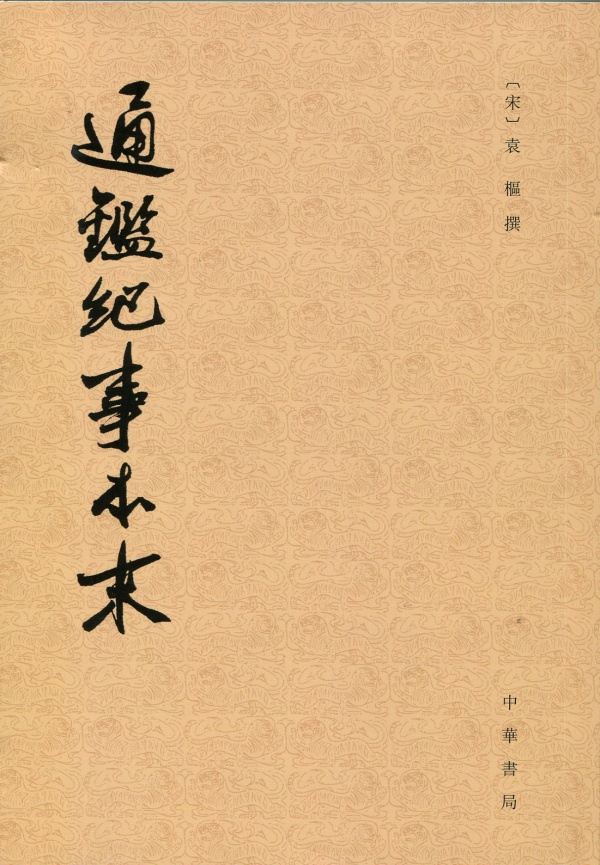 〔宋〕袁樞撰
通鑑紀事本末
中華書局